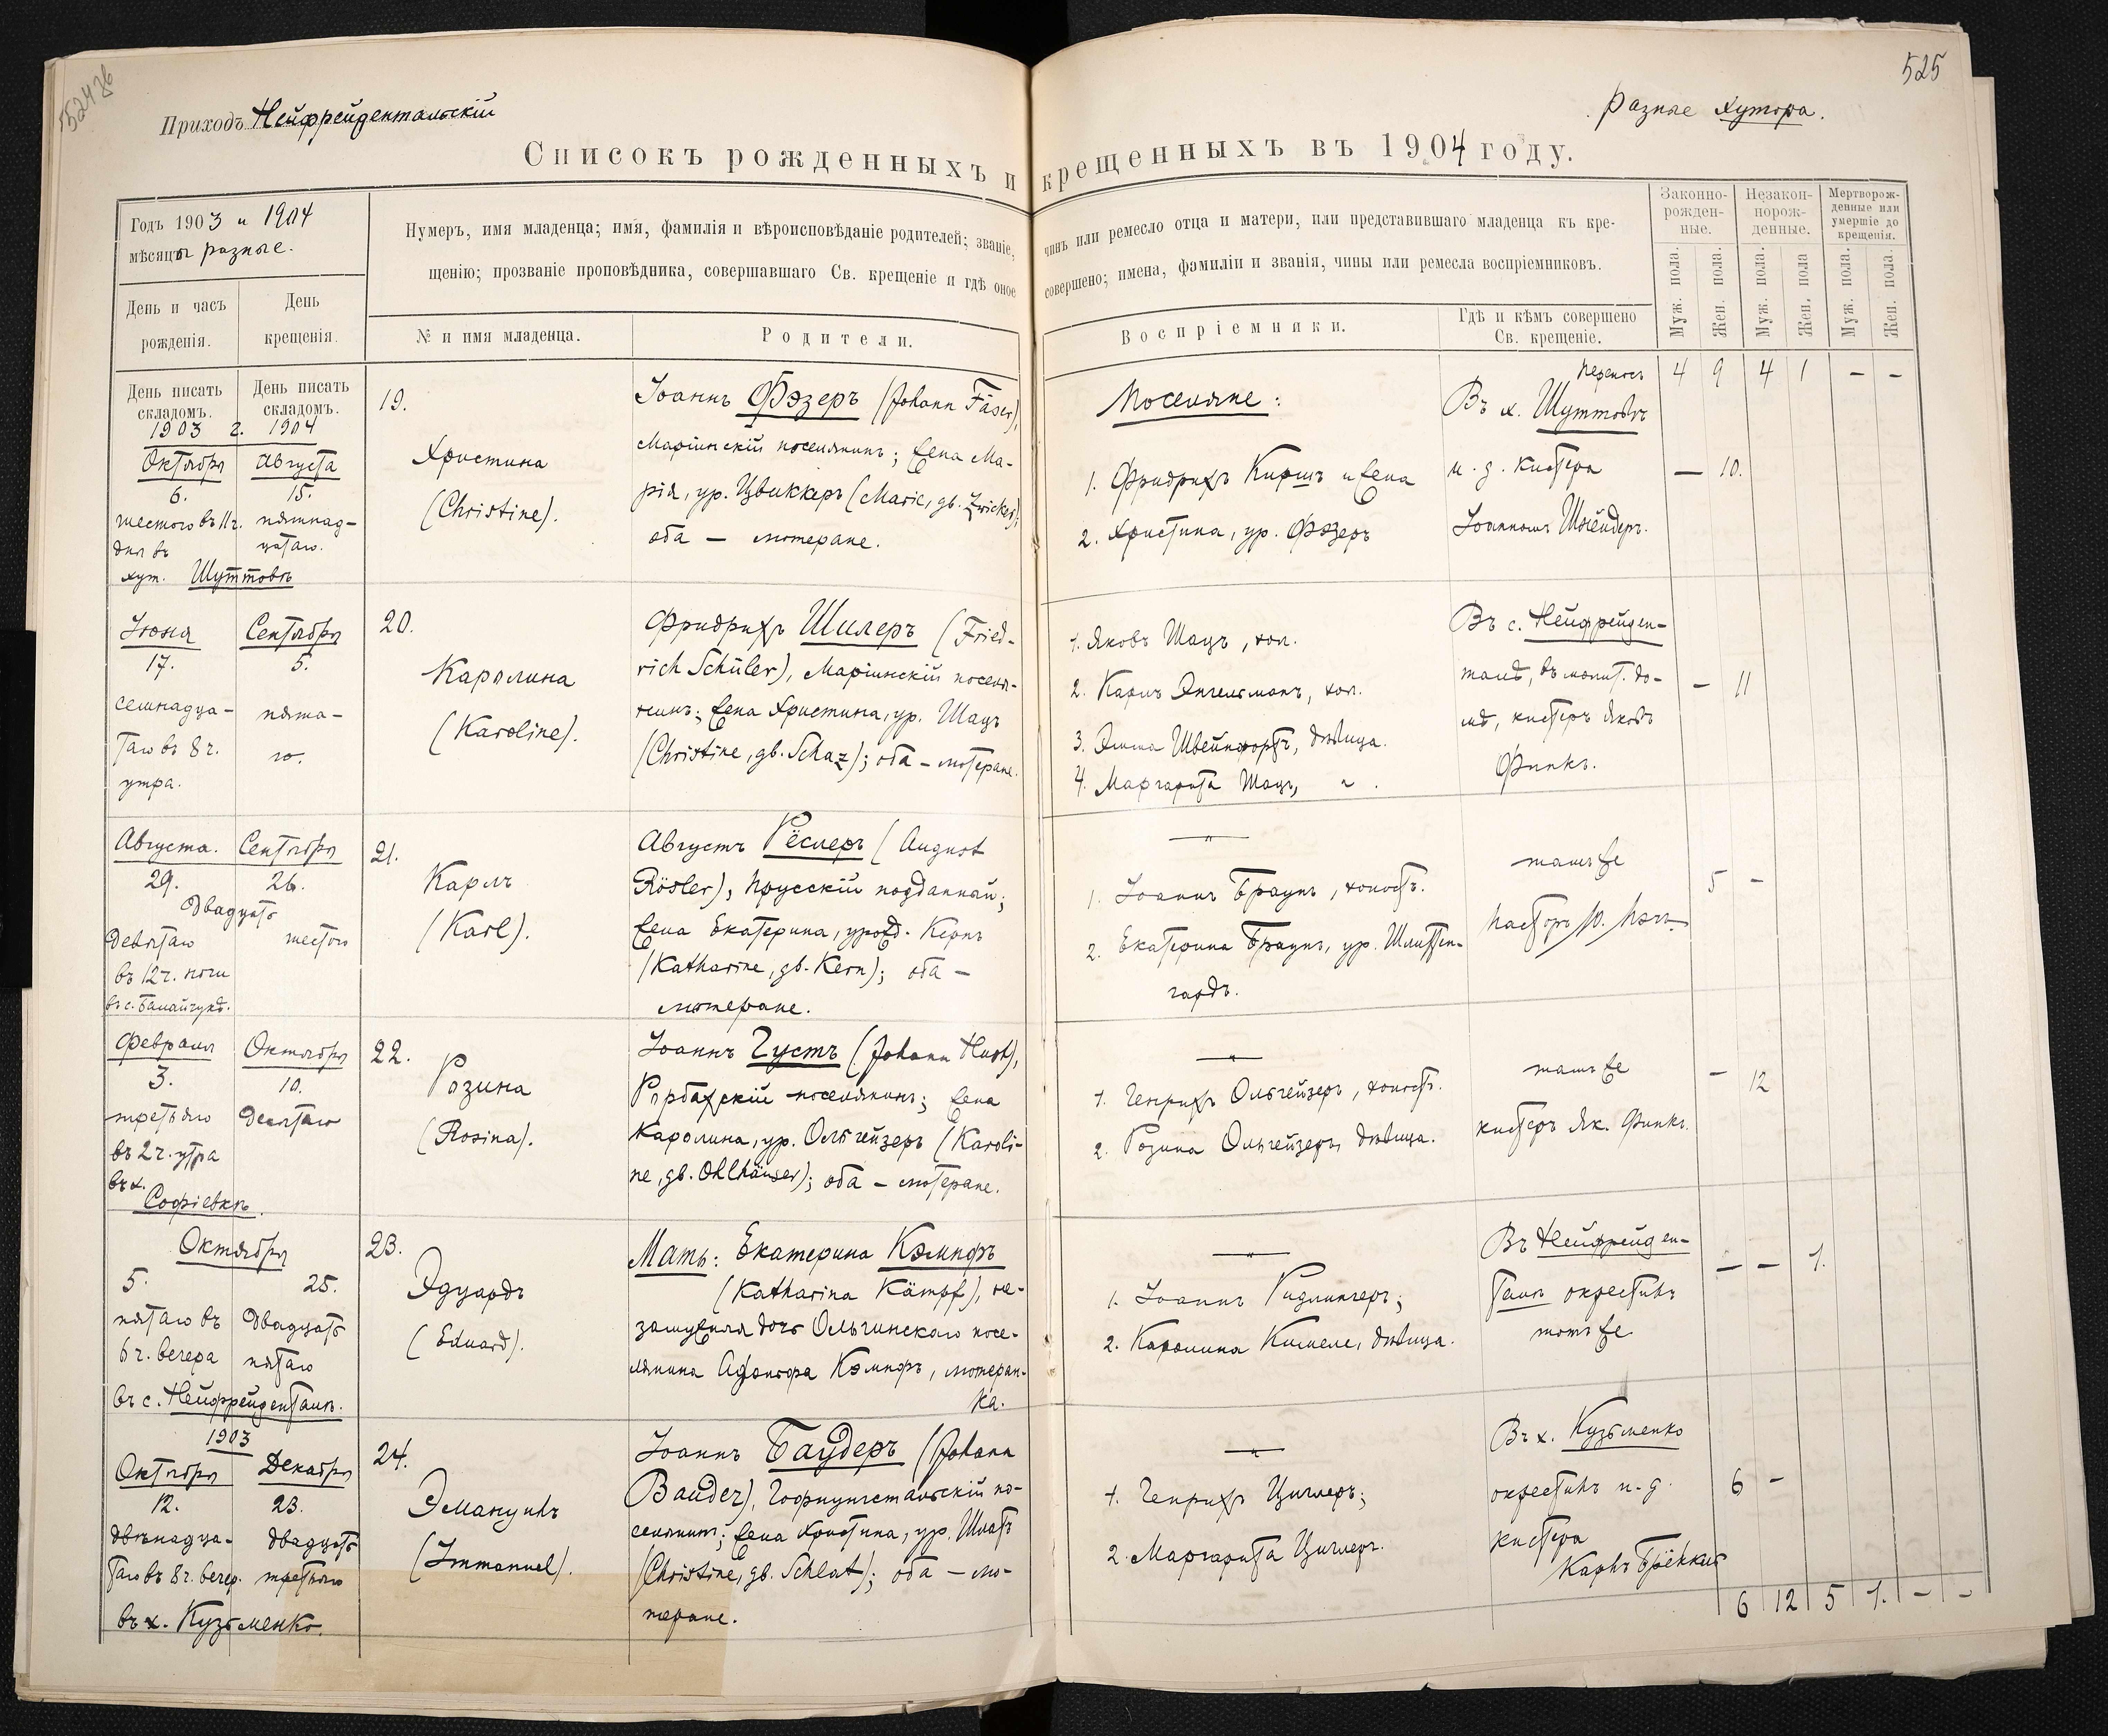 525
Приходъ Нейфрейдентальскій
Разные хутора.
Списокъ рожденныхъ и крещенныхъ въ 1904 году.
Годъ 1903 и 1904
мѣсяцы разные.
Нумеръ, имя младенца; имя, фамилія и вѣроисповѣданіе родителей; званіе, чинъ или ремесло отца и матери, или представившаго младенца къ кре-
щенію; прозваніе проповѣдника, совершавшаго Св. крещеніе и гдѣ оное совершено; имена, фамиліи и званія, чины или ремесла воспріемниковъ.
Законно-
рожден-
ные.
Незакон-
норож-
денные.
Мертворож-
денные или
умершіе до
крещенія.
Муж. пола.
Жен. пола.
Муж. пола.
Жен. пола
Муж. пола.
Жен. пола.
День и часъ
рожденія.
День
крещенія.
№ и имя младенца.
Родители.
Воспріемники.
Гдѣ и кѣмъ совершено
Св. крещеніе.
День писать
складомъ.
День писать
складомъ.
Переносъ 4 9 4 1 – –
1903 г. 1904
Октября
6.
шестого въ 11 ч.
дня въ
хут. Шуттовъ
Августа
15.
пятнад-
цатаго.
19.
Христина
(Christine).
Іоаннъ Фэзеръ (Johann Fäser),
Маріинскій поселянинъ; жена Ма-
рія, ур. Цвиккеръ (Marie, gb. Zwicker);
оба — лютеране.
Поселяне:
1. Фридрихъ Киршъ и жена
2. Христина, ур. Фэзеръ
Въ х. Шуттовъ
и. д. кистера
Іоанномъ Шнейдеръ.
— 10.
Іюня
17.
семнадца-
таго въ 8 ч.
утра.
Сентября
5.
пята-
го.
20.
Каролина
(Karoline).
Фридрихъ Шилеръ (Fried-
rich Schüler), Маріинскій поселя-
нинъ; жена Христина, ур. Шацъ
(Christine, gb. Schaz); оба – лютеране.
1. Яковъ Шацъ, хол.
2. Карлъ Энгельманъ, хол.
3. Эмма Швейнфортъ, дѣвица.
4. Маргарита Шацъ, „ .
Въ с. Нейфрейден-
талѣ, въ молит. до-
мѣ, кистеръ Яковъ
Финкъ.
– 11
Августа.
29.
Двадцать
девятаго
въ 12 ч. ночи
въ с. Балайчукъ.
Сентября
26.
шестого
21.
Карлъ
(Karl).
Августъ Рёслеръ (August
Rösler), прусскій подданный;
жена Екатерина, урожд. Кернъ
(Katharine, gb. Kern); оба –
лютеране.
— „ —
1. Іоаннъ Браунъ, холостъ.
2. Екатерина Браунъ, ур. Шлиттен-
гардъ.
тамъ же
Пасторъ
5 –
Февраля
3.
третьяго
въ 2 ч. утра
въ х.
Софіевкѣ.
Октября
10.
Десятаго
22.
Розина
(Rosina).
Іоаннъ Густъ (Johann Hust),
Рорбахскій поселянинъ; жена
Каролина, ур. Ольгейзеръ (Karoli-
ne, gb. Ohlhäuser); оба – лютеране.
— „ —
1. Генрихъ Ольгейзеръ, холостъ.
2. Розина Ольгейзеръ, дѣвица.
тамъ же
кистеръ Як. Финкъ.
– 12
Октября
5.
пятаго въ
6 ч. вечера
въ с. Нейфрейденталѣ.
25.
Двадцать
пятаго
23.
Эдуардъ
(Eduard).
Мать: Екатерина Кэмпфъ
(Katharina Kämpf), не-
замужняя дочь Ольгинскаго посе-
лянина Кэмпфъ, лютеран-
ка.
— „ —
1. Іоаннъ Ридлингеръ;
2. Каролина Киммеле, дѣвица.
Въ Нейфрейден-
талѣ окрестилъ
тотъ же
– – 1.
1903
Октября
12.
двѣнадца-
таго въ 8 ч. вечер.
въ х. Кузьменко.
Декабря
23.
двадцать
третьяго
24.
Эмануилъ
(Immanuel).
Іоаннъ Баудеръ (Johann
Bauder), Гофнунгстальскій по-
селянинъ; жена Христина, ур. Шлатъ
(Christine, gb. Schlat); оба – лю-
теране.
— „ —
1. Генрихъ Циглеръ;
2. Маргарита Циглеръ.
Въ х. Кузьменко
окрестилъ и. д.
кистера
Карлъ
6 –
6 12 5 1. – –